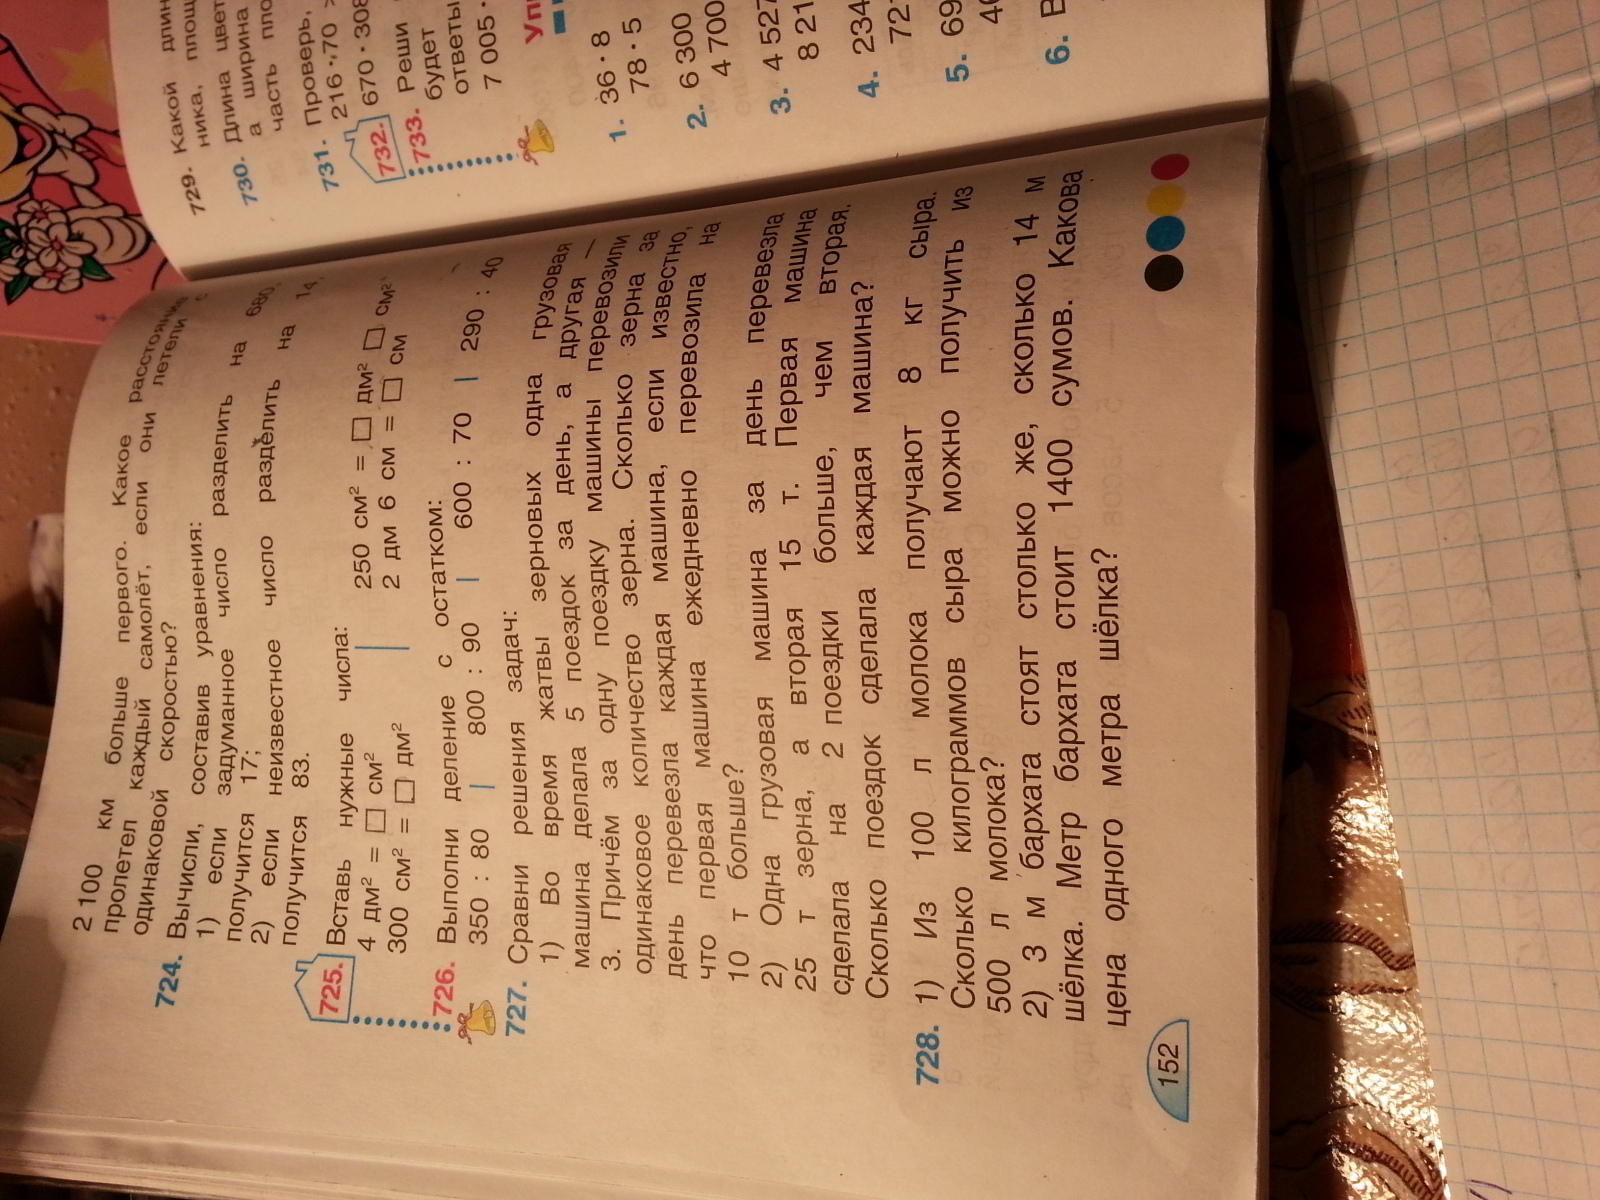 2 100 км больше первого. Какое расстояние
пролетел каждый самолёт, если они летели с
одинаковой скоростью?
724. Вычисли, составив уравнения:
1) если задуманное число разделить на 680,
получится 17;
2) если неизвестное число разделить на 14,
получится 83.
725. Вставь нужные числа:
4 дм² = □ см² | 250 см² = □ дм² □ см²
300 см² = □ дм² | 2 дм 6 см = □ см
726. Выполни деление с остатком:
350 : 80 | 800 : 90 | 600 : 70 | 290 : 40
727. Сравни решения задач:
1) Во время жатвы зерновых одна грузовая
машина делала 5 поездок за день, а другая —
3. Причём за одну поездку машины перевозили
одинаковое количество зерна. Сколько зерна за
день перевезла каждая машина, если известно,
что первая машина ежедневно перевозила на
10 т больше?
2) Одна грузовая машина за день перевезла
25 т зерна, а вторая 15 т. Первая машина
сделала на 2 поездки больше, чем вторая.
Сколько поездок сделала каждая машина?
728. 1) Из 100 л молока получают 8 кг сыра.
Сколько килограммов сыра можно получить из
500 л молока?
2) 3 м бархата стоят столько же, сколько 14 м
шёлка. Метр бархата стоит 1400 сумов. Какова
цена одного метра шёлка?
152
729. Какой
ника,
730. Длина
а ширина
часть
731. Проверь,
216 · 70 >
732. 670 ·
733. Реши
будет
ответы
7 005 ·
1. 36 · 8
78 · 5
2. 6 300
4 700
3.
4. 234
5.
6.